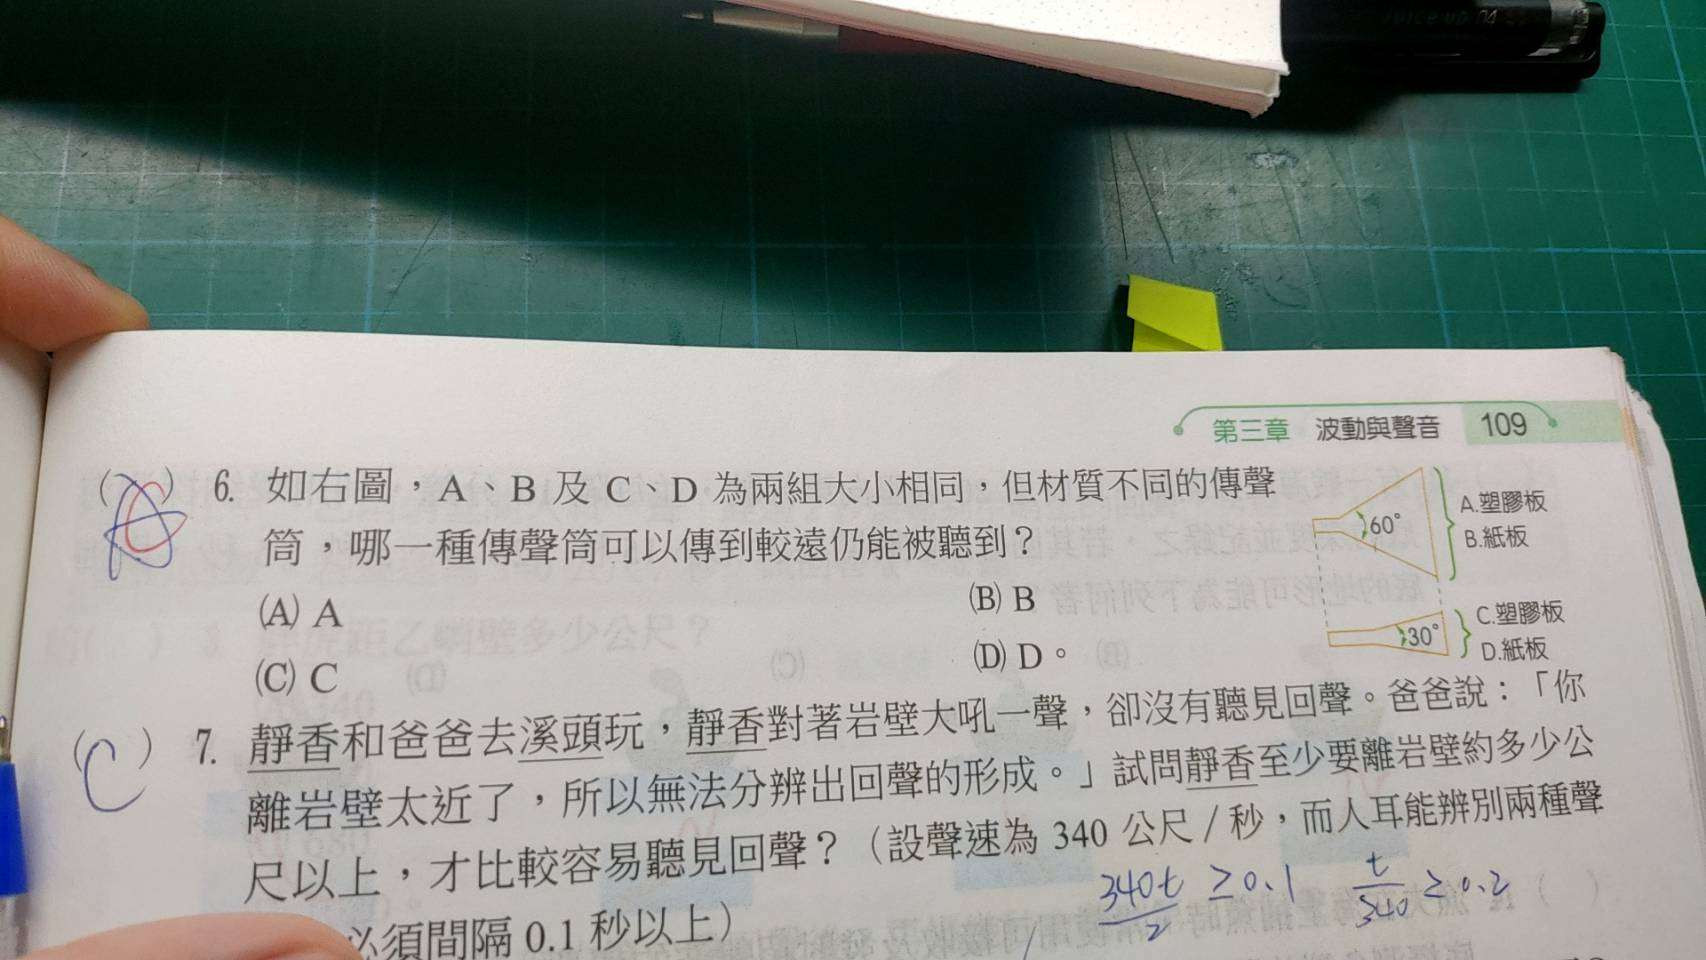 第三章 波動與聲音 109
6. 如右圖，A、B 及 C、D 為兩組大小相同，但材質不同的傳聲
筒，哪一種傳聲筒可以傳到較遠仍能被聽到？
(A) A
(B) B
(C) C
(D) D。
60°
A.塑膠板
B.紙板
30°
C.塑膠板
D.紙板
( C ) 7. 靜香和爸爸去溪頭玩，靜香對著岩壁大吼一聲，卻沒有聽見回聲。爸爸說：「你
離岩壁太近了，所以無法分辨出回聲的形成。」試問靜香至少要離岩壁約多少公
尺以上，才比較容易聽見回聲？（設聲速為 340 公尺／秒，而人耳能辨別兩種聲
必須間隔 0.1 秒以上）
340t/2 ≥ 0.1 t/340 ≥ 0.2